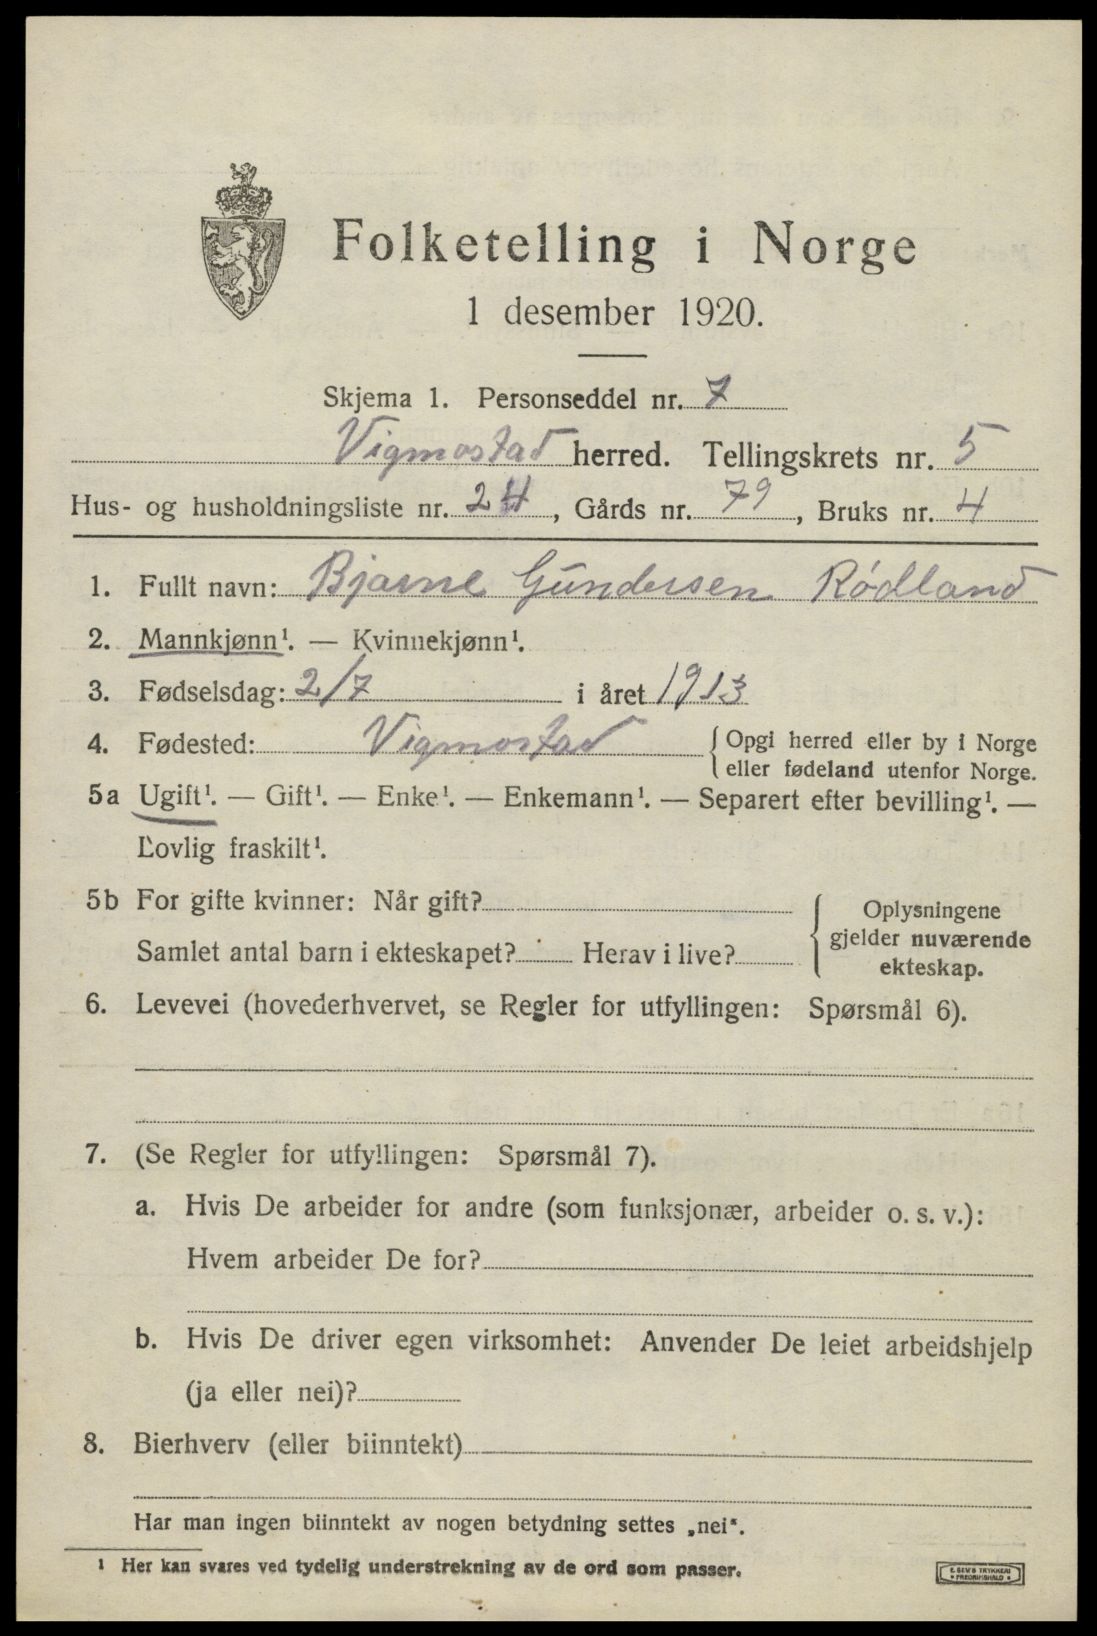 Folketelling i Norge
1 desember 1920.
Skjema 1. Personseddel nr. 7
Vigmostad herred. Tellingskrets nr. 5
Hus- og husholdningsliste nr. 24, Gårds nr. 79, Bruks nr. 4
1. Fullt navn: Bjarne Gundersen Rødland
2. Mannkjønn¹. — Kvinnekjønn¹.
3. Fødselsdag: 2/7 i året 1913
4. Fødested: Vigmostad { Opgi herred eller by i Norge
eller fødeland utenfor Norge.
5a Ugift¹. — Gift¹. — Enke¹. — Enkemann¹. — Separert efter bevilling¹. —
Lovlig fraskilt¹.
5b For gifte kvinner: Når gift?
Samlet antal barn i ekteskapet? Herav i live?
{ Oplysningene
gjelder nuværende
ekteskap.
6. Levevei (hovederhvervet, se Regler for utfyllingen: Spørsmål 6).
7. (Se Regler for utfyllingen: Spørsmål 7).
a. Hvis De arbeider for andre (som funksjonær, arbeider o. s. v.):
Hvem arbeider De for?
b. Hvis De driver egen virksomhet: Anvender De leiet arbeidshjelp
(ja eller nei)?
8. Bierhverv (eller biinntekt)
Har man ingen biinntekt av nogen betydning settes „nei“.
¹ Her kan svares ved tydelig understrekning av de ord som passer.
E. SEM'S TRYKKERI
• FREDRIKSHALD •